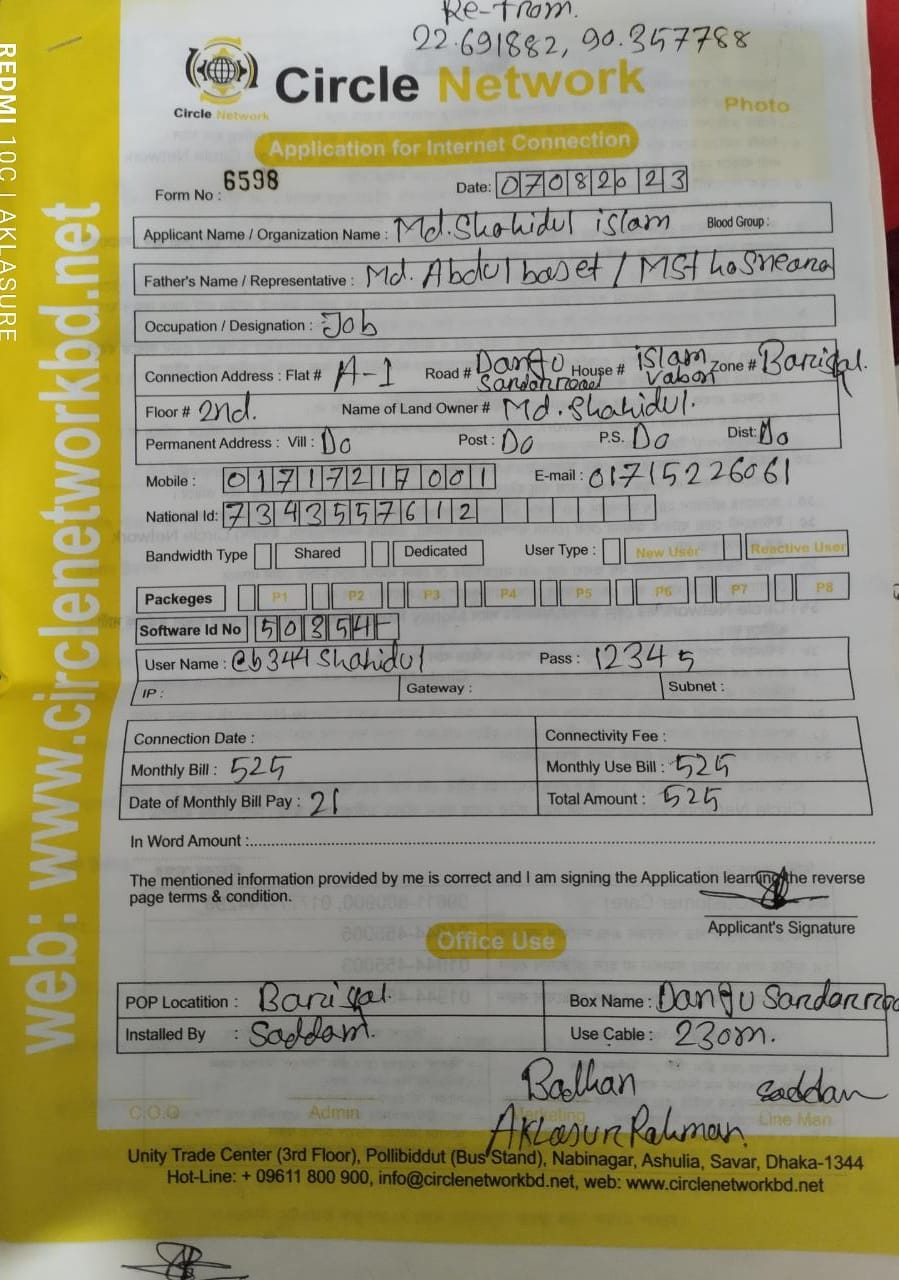 Re-from.
22.691882, 90.357788
Circle Network
Circle Network
Photo
Application for Internet Connection
Form No : 6598
Date: 07082023
Applicant Name / Organization Name : Md. Shahidul islam Blood Group :
Father's Name / Representative : Md. Abdul baset / MSt hosneana
Occupation / Designation : Job
Connection Address : Flat # A-1 Road # House # islam vabon Zone # Barisal.
Floor # 2nd. Name of Land Owner # Md. Shahidul.
Permanent Address : Vill : Do Post : Do P.S. Do Dist: Do
Mobile : 01717217001 E-mail : 01715226061
National Id: 7343557612
Bandwidth Type Shared Dedicated User Type : New User Reactive User
Packeges P1 P2 P3 P4 P5 P6 P7 P8
Software Id No 50354
User Name : @b344 Shahidul Pass : 12345
IP : Gateway : Subnet :
Connection Date : Connectivity Fee :
Monthly Bill : 525 Monthly Use Bill : 525
Date of Monthly Bill Pay : 21 Total Amount : 525
In Word Amount :
The mentioned information provided by me is correct and I am signing the Application learning the reverse
page terms & condition.
Applicant's Signature
Office Use
POP Locatition : Barisal. Box Name :
Installed By : Saddam. Use Cable : 230m.
Badhan Saddam
C.O.O Admin Marketing Line Man
Aklasur Rahman.
Unity Trade Center (3rd Floor), Pollibiddut (Bus Stand), Nabinagar, Ashulia, Savar, Dhaka-1344
Hot-Line: + 09611 800 900, info@circlenetworkbd.net, web: www.circlenetworkbd.net
web: www.circlenetworkbd.net
REDMI 10C | AKLASURE